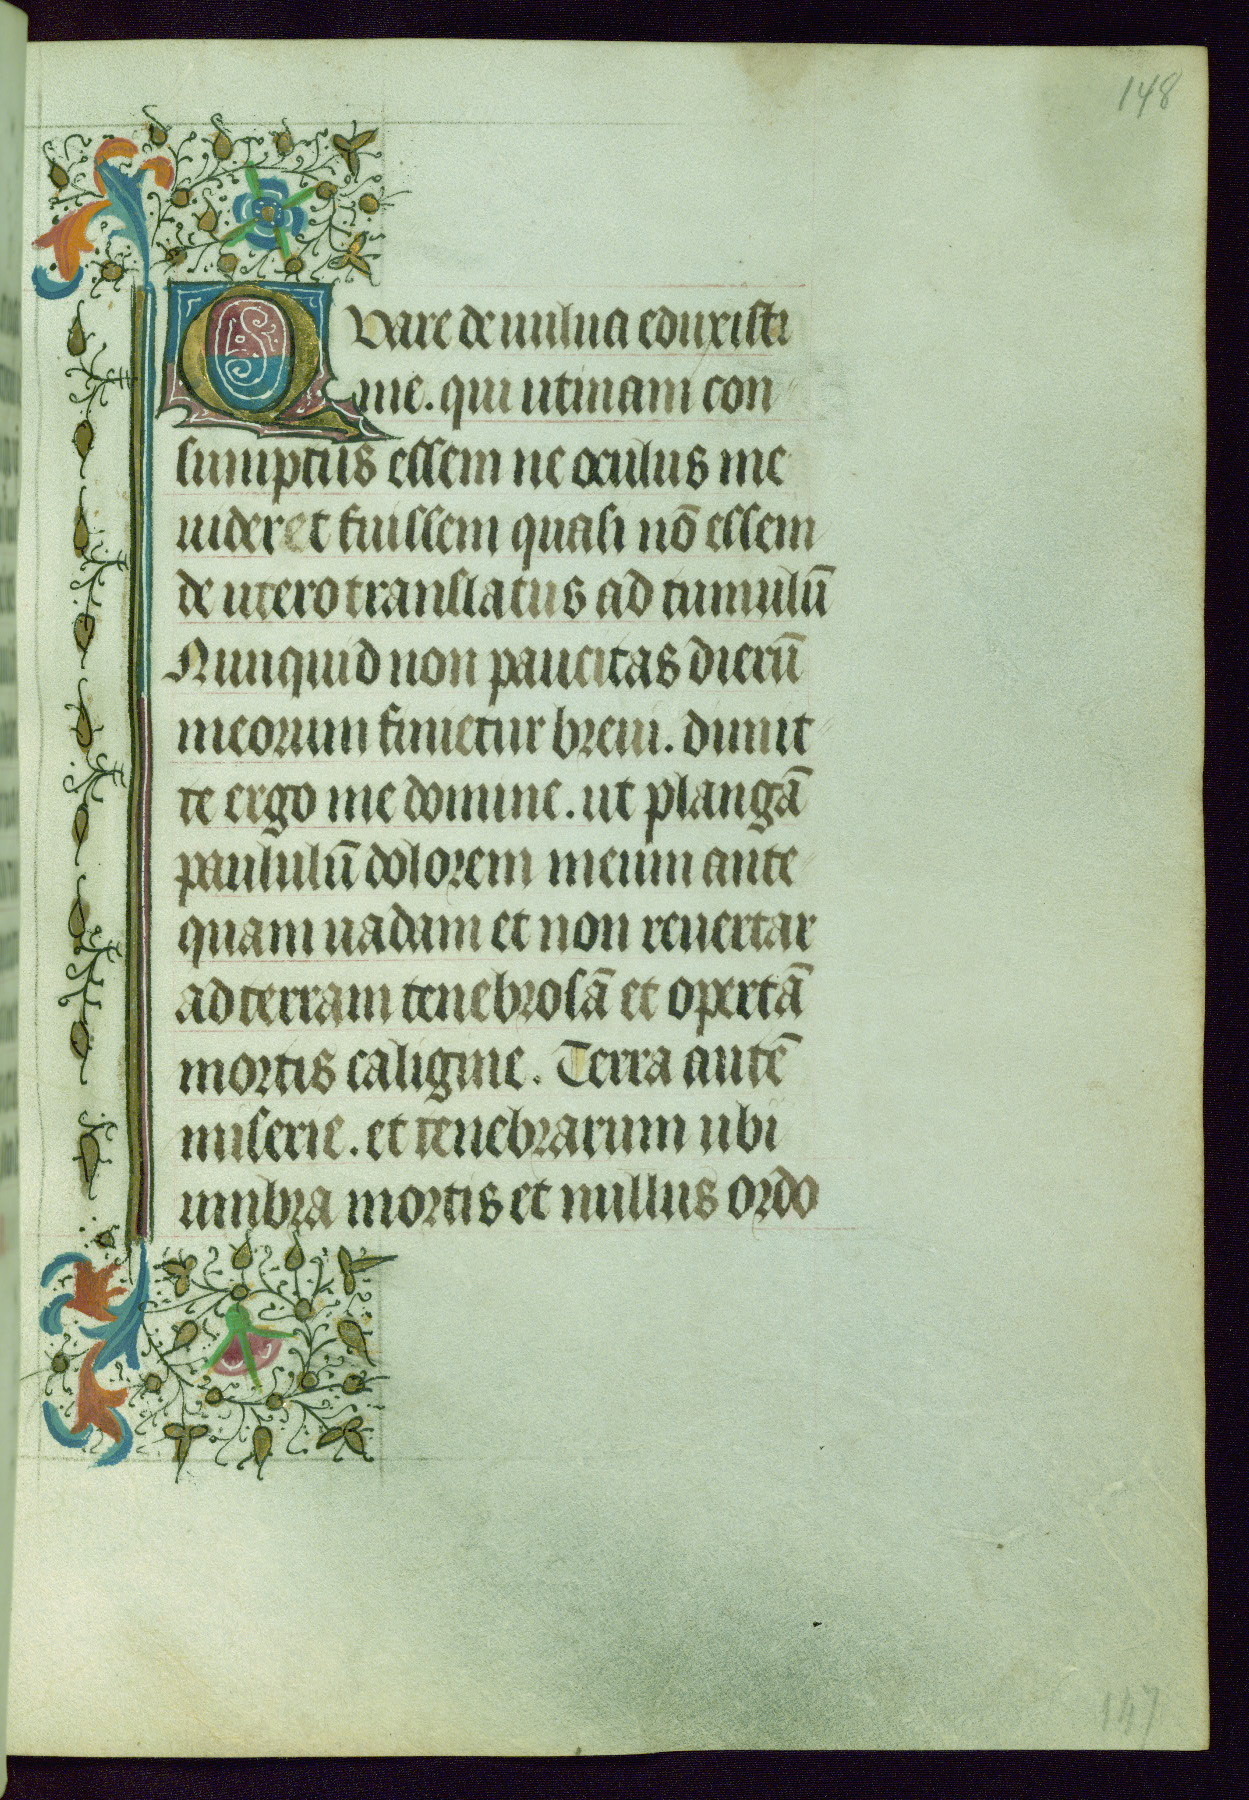 148
Quare de uulua eduxisti
me. qui utinam con
sumptus essem ne oculus me
uideret fuissem quasi nō essem
de utero translatus ad tumulū
Nunquid non paucitas dierū
meorum finietur breui. dimit
te ergo me domine. ut plangā
paululū dolorem meum ante
quam uadam et non reuertar
ad terram tenebrosā et opertā
mortis caligine. Terra autē
miserie. et tenebrarum ubi
umbra mortis et nullus ordo
147